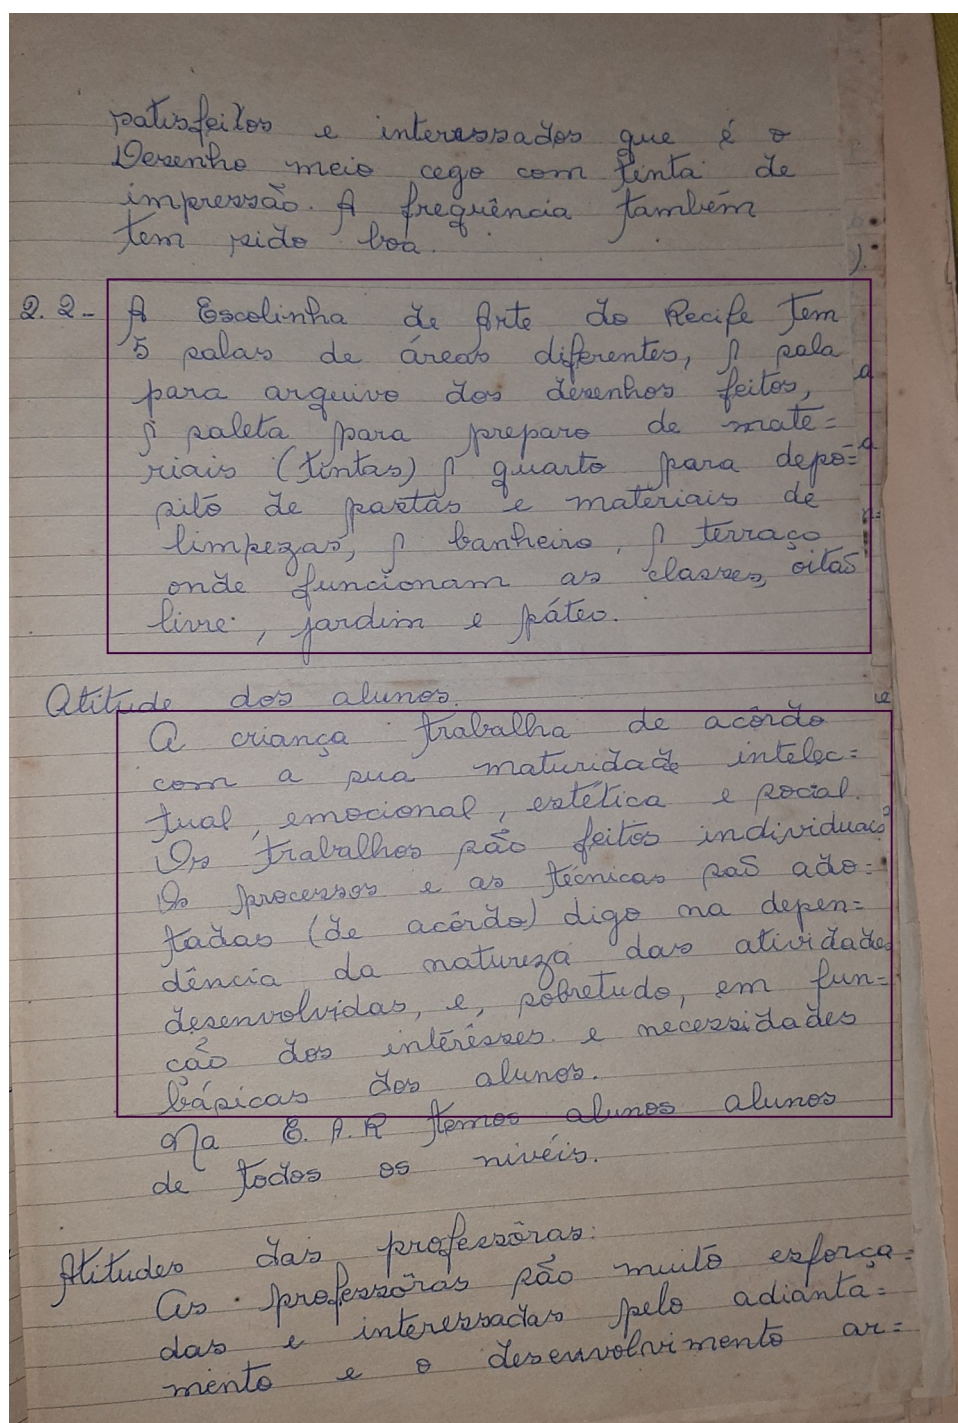 satisfeitos e interessados que é o
Desenho meio cego com tinta de
impressão. A frequência também
tem sido boa.
2.2- A Escolinha de Arte do Recife tem
5 salas de áreas diferentes, 1 sala
para arquivo dos desenhos feitos,
1 saleta para preparo de mate=
riais (tintas) 1 quarto para depó=
sito de pastas e materiais de
limpezas, 1 banheiro, 1 terraço
onde funcionam as classes, oitão
livre, jardim e páteo.
Atitude dos alunos.
A criança trabalha de acôrdo
com a sua maturidade intelec=
tual, emocional, estética e social.
Os trabalhos são feitos individuais
Os processos e as técnicas são ado=
tadas (de acôrdo) digo na depen=
dência da natureza das atividades
desenvolvidas, e, sobretudo, em fun=
ção dos interêsses e necessidades
básicas dos alunos.
Na E. A. R temos alunos alunos
de todos os nivéis.
Atitudes das professôras:
As professôras são muito esforça=
das e interessadas pelo adianta=
mento e o desenvolvimento ar=